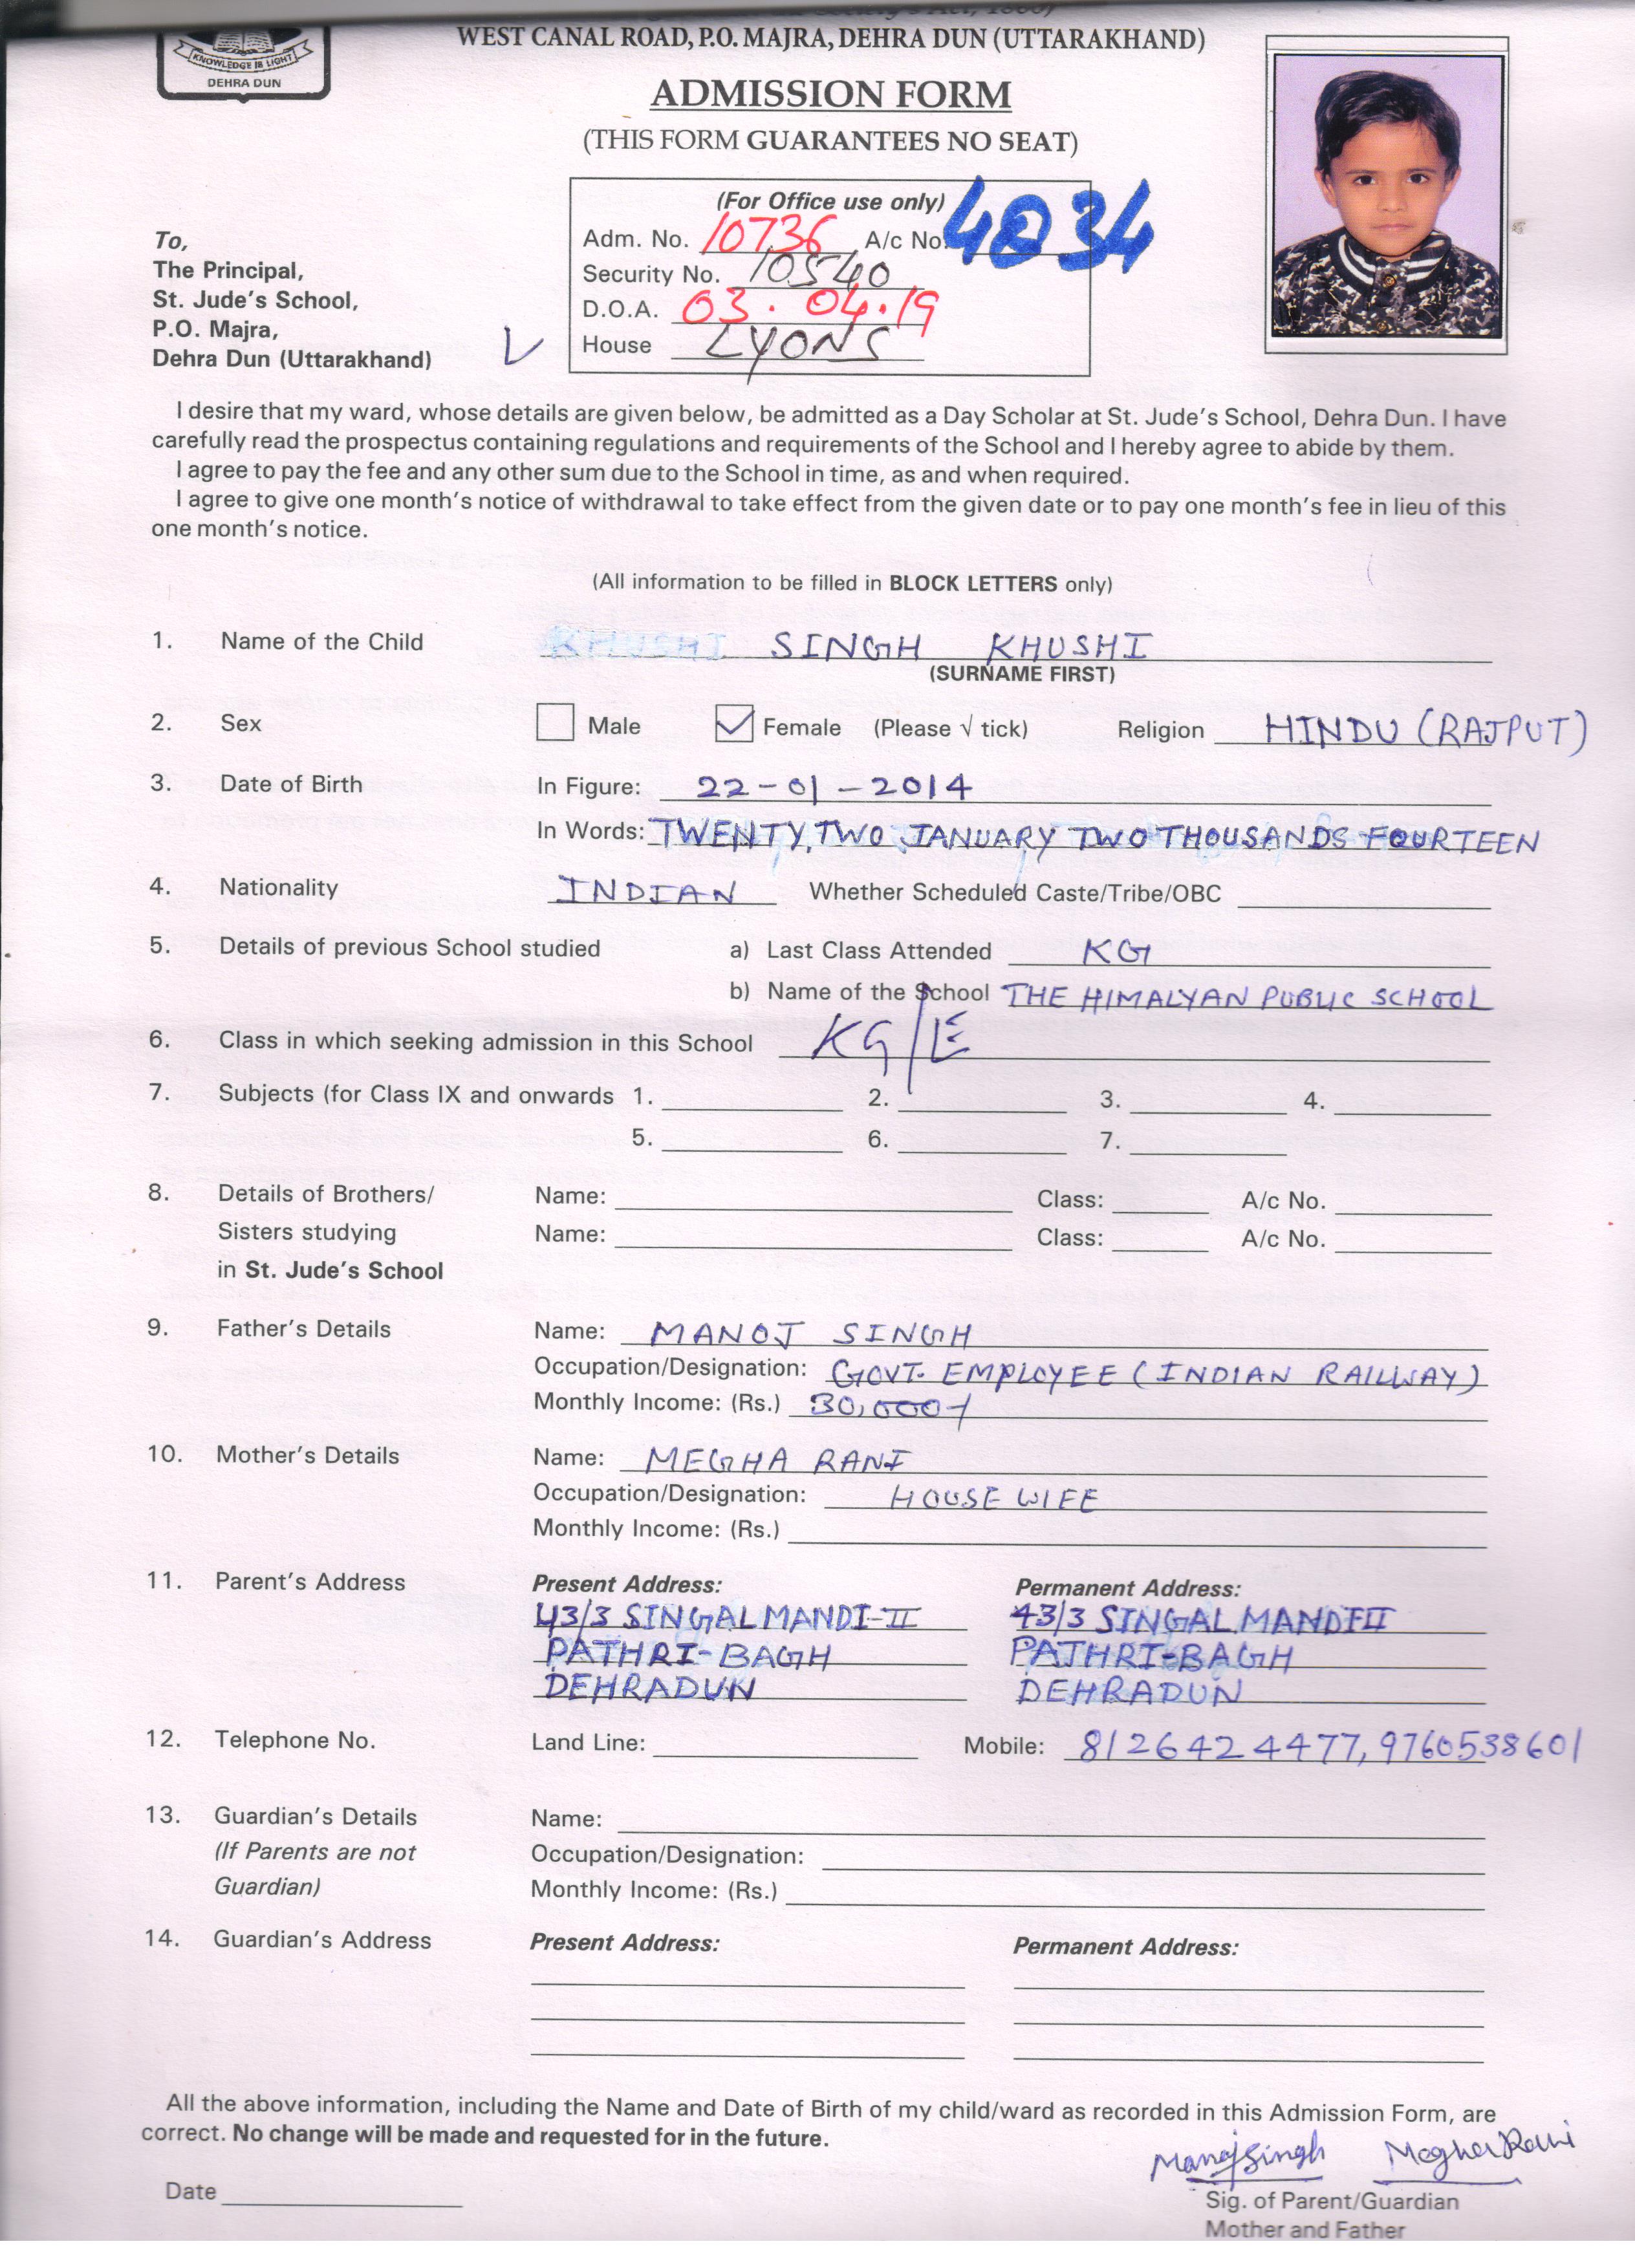 KNOWLEDGE IS LIGHT
DEHRA DUN
WEST CANAL ROAD, P.O. MAJRA, DEHRA DUN (UTTARAKHAND)
ADMISSION FORM
(THIS FORM GUARANTEES NO SEAT)
(For Office use only)
Adm. No. 10736 A/c No. 4034
Security No. 10540
D.O.A. 03.04.19
House LYONS
To,
The Principal,
St. Jude's School,
P.O. Majra,
Dehra Dun (Uttarakhand)
I desire that my ward, whose details are given below, be admitted as a Day Scholar at St. Jude's School, Dehra Dun. I have
carefully read the prospectus containing regulations and requirements of the School and I hereby agree to abide by them.
I agree to pay the fee and any other sum due to the School in time, as and when required.
I agree to give one month's notice of withdrawal to take effect from the given date or to pay one month's fee in lieu of this
one month's notice.
(All information to be filled in BLOCK LETTERS only)
1. Name of the Child KHUSHI SINGH KHUSHI
(SURNAME FIRST)
2. Sex Male Female (Please √ tick) Religion HINDU (RAJPUT)
3. Date of Birth In Figure: 22-01-2014
In Words: TWENTY, TWO JANUARY TWO THOUSANDS FOURTEEN
4. Nationality INDIAN Whether Scheduled Caste/Tribe/OBC
5. Details of previous School studied a) Last Class Attended KG
b) Name of the School THE HIMALYAN PUBLIC SCHOOL
6. Class in which seeking admission in this School KG/E
7. Subjects (for Class IX and onwards 1. 2. 3. 4.
5. 6. 7.
8. Details of Brothers/ Name: Class: A/c No.
Sisters studying Name: Class: A/c No.
in St. Jude's School
9. Father's Details Name: MANOJ SINGH
Occupation/Designation: GOVT. EMPLOYEE (INDIAN RAILWAY)
Monthly Income: (Rs.) 30,000/
10. Mother's Details Name: MEGHA RANI
Occupation/Designation: HOUSE WIFE
Monthly Income: (Rs.)
11. Parent's Address Present Address: Permanent Address:
43/3 SINGAL MANDI-II 43/3 SINGAL MANDI-II
PATHRI-BAGH PATHRI-BAGH
DEHRADUN DEHRADUN
12. Telephone No. Land Line: Mobile: 8126424477, 9760538601
13. Guardian's Details Name:
(If Parents are not Occupation/Designation:
Guardian) Monthly Income: (Rs.)
14. Guardian's Address Present Address: Permanent Address:
All the above information, including the Name and Date of Birth of my child/ward as recorded in this Admission Form, are
correct. No change will be made and requested for in the future.
Manoj Singh Megha Rani
Date Sig. of Parent/Guardian
Mother and Father